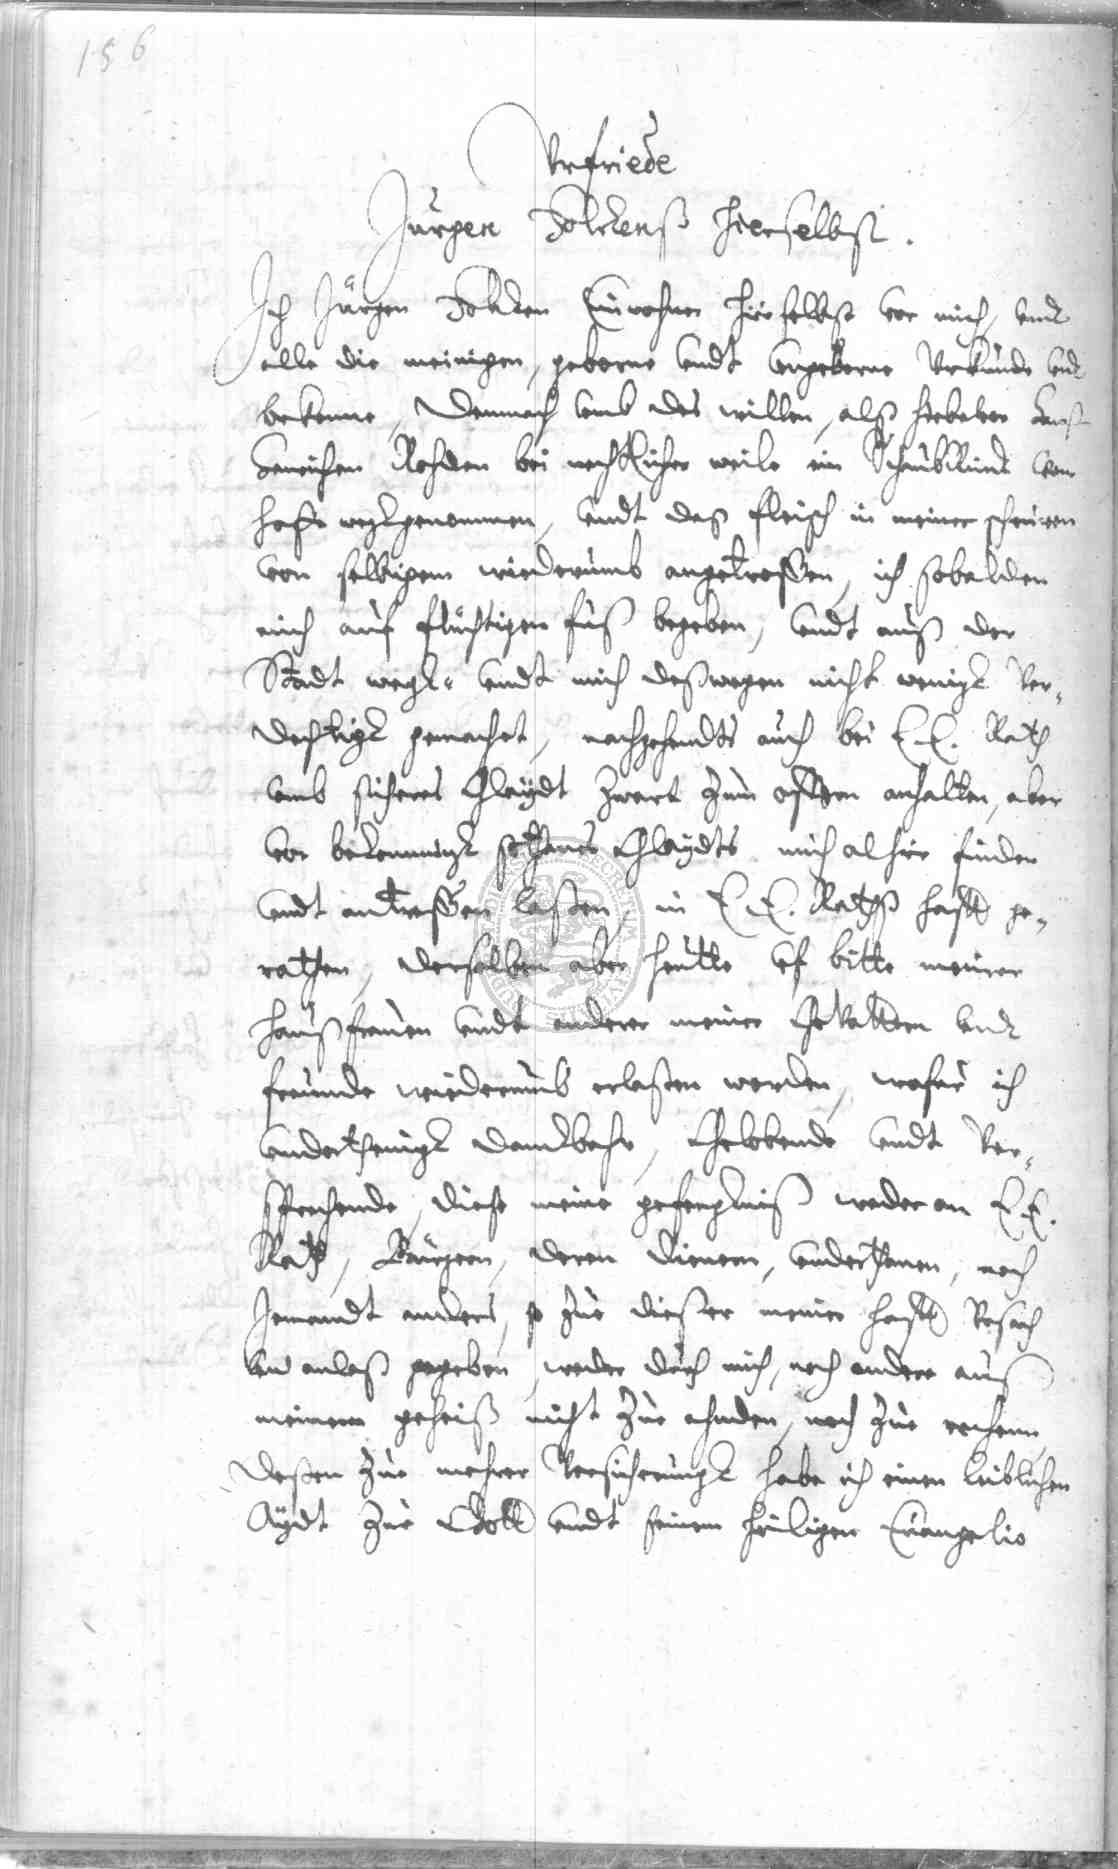 156
Urfriede
Jürgen Volckenß hierselbst.
Ich Jürgen Volcken Einwohner hirselbst vor mich, undt
alle die meinigen, geborne undt ungeborne Urkunde und
bekenne, Demnach umb des willen, alß
Rohden bei nechtlicher weile ein von
hofe wegkgenommen, undt daß fleisch in meiner scheuren
von selbigem wiederumb angetroffen, ich sobalden
mich auf flüchtigen fuß begeben, undt auß der
Stadt wegk- undt mich deßwegen nicht wenigk Ver-
dechtigk gemachet, nachgehendts auch bei E. E. Rath
umb sicheres Glaydt zwart zum offtern anhalten, aber
vor bekommung solchenes Glaydts mich alhir finden
undt antreffen laßen, in E. E. Rathß hafft ge-
rathen, derselben aber heutte uf bitte meiner
haußfrauen undt anderer meiner Gevattern und
freunde wiederumb erlaßen worden, wofur ich
underthenigk danckbahr, Gelobende undt Ver-
sprechende, diese meine gefengkniß weder an E. E.
Rath, Bürgern, deren dienern, underthanen, noch
Jemandt anders, so zue dießer meiner hafft Ursach
und anlaß gegeben, weder durch mich, noch andere auß
meinem geheiß nicht zue ahnden, noch zue rechenn,
Deßen zue mehrer Versicherungk habe ich einen leiblichen
Aydt zue Gott undt seinem heiligen Evangelio